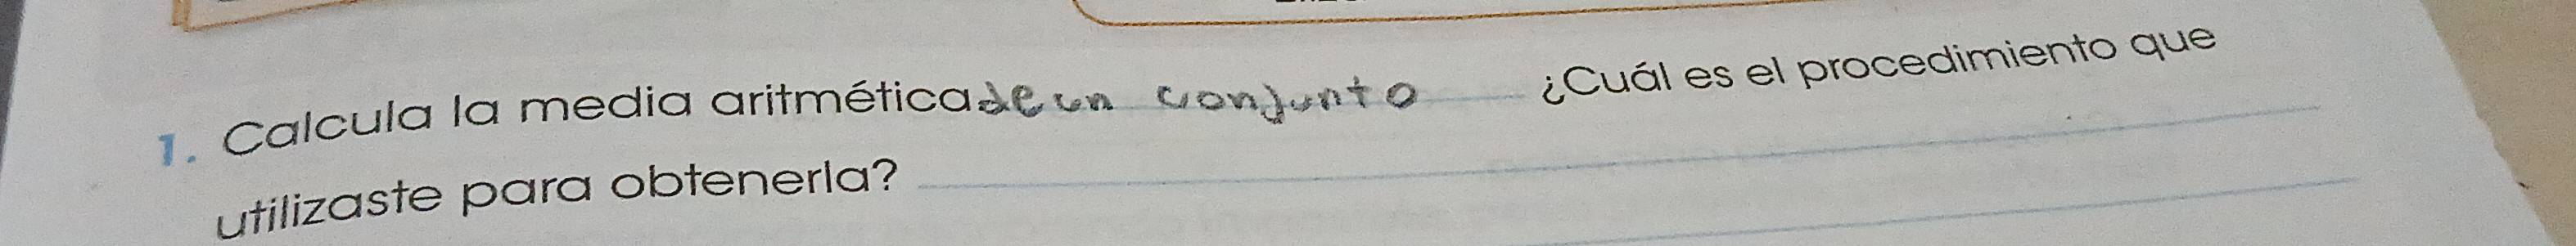 1. Calcula la media aritmética de un conjunto ¿Cuál es el procedimiento que
utilizaste para obtenerla?